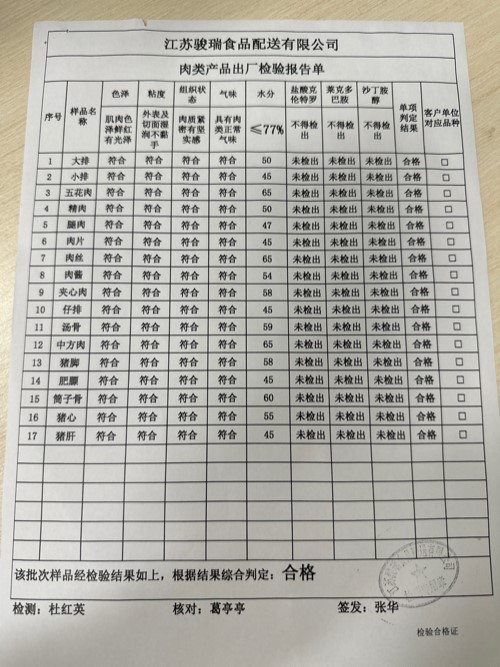 江苏骏瑞食品配送有限公司
肉类产品出厂检验报告单
序号 样品名称 色泽 粘度 组织状态 气味 水分 盐酸克伦特罗 莱克多巴胺 沙丁胺醇 单项判定结果 客户单位对应品种
肌肉色泽鲜红有光泽 外表及切面湿润不黏手 肉质紧密有坚实感 具有肉类正常气味 ≤77% 不得检出 不得检出 不得检出
1 大排 符合 符合 符合 符合 50 未检出 未检出 未检出 合格 □
2 小排 符合 符合 符合 符合 45 未检出 未检出 未检出 合格 □
3 五花肉 符合 符合 符合 符合 65 未检出 未检出 未检出 合格 □
4 精肉 符合 符合 符合 符合 50 未检出 未检出 未检出 合格 □
5 腿肉 符合 符合 符合 符合 47 未检出 未检出 未检出 合格 □
6 肉片 符合 符合 符合 符合 45 未检出 未检出 未检出 合格 □
7 肉丝 符合 符合 符合 符合 65 未检出 未检出 未检出 合格 □
8 肉酱 符合 符合 符合 符合 54 未检出 未检出 未检出 合格 □
9 夹心肉 符合 符合 符合 符合 58 未检出 未检出 未检出 合格 □
10 仔排 符合 符合 符合 符合 45 未检出 未检出 未检出 合格 □
11 汤骨 符合 符合 符合 符合 59 未检出 未检出 未检出 合格 □
12 中方肉 符合 符合 符合 符合 65 未检出 未检出 未检出 合格 □
13 猪脚 符合 符合 符合 符合 58 未检出 未检出 未检出 合格 □
14 肥膘 符合 符合 符合 符合 45 未检出 未检出 未检出 合格 □
15 筒子骨 符合 符合 符合 符合 60 未检出 未检出 未检出 合格 □
16 猪心 符合 符合 符合 符合 55 未检出 未检出 未检出 合格 □
17 猪肝 符合 符合 符合 符合 45 未检出 未检出 未检出 合格 □
该批次样品经检验结果如上，根据结果综合判定：合格
检测：杜红英 核对：葛亭亭 签发：张华
检验合格证